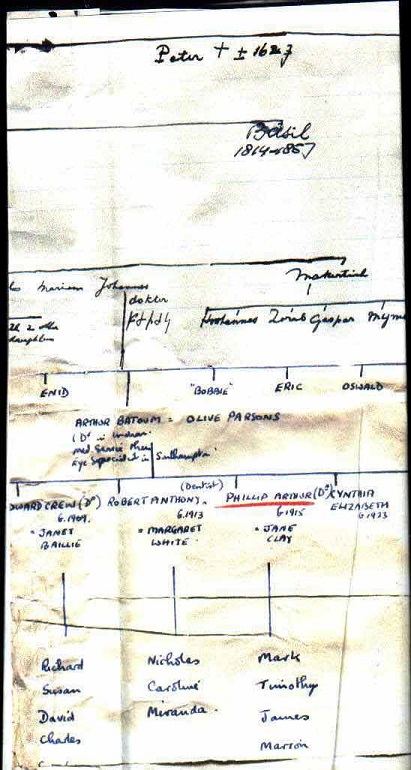 Peter + ± 162
Basil
1814-1857
Marriam Johannes
Makertich
daughters
dokter
Johannes Zorab Gaspar
ENID
"BOBBIE" ERIC OSWALD
ARTHUR BATOUM = OLIVE PARSONS
(Dr in Indian
Med Service then
Eye Specialist in Southampton
(Dentist)
CREW (Dr) ROBERT ANTHONY. PHILLIP ARTHUR (Dr) CYNTHIA
b.1909. b.1913 b.1915 ELIZABETH
b.1923
= JANET = MARGARET = JANE
BAILLIE WHITE. CLAY
Richard Nicholas Mark
Susan Caroline Timothy
David Miranda. James
Charles Marion